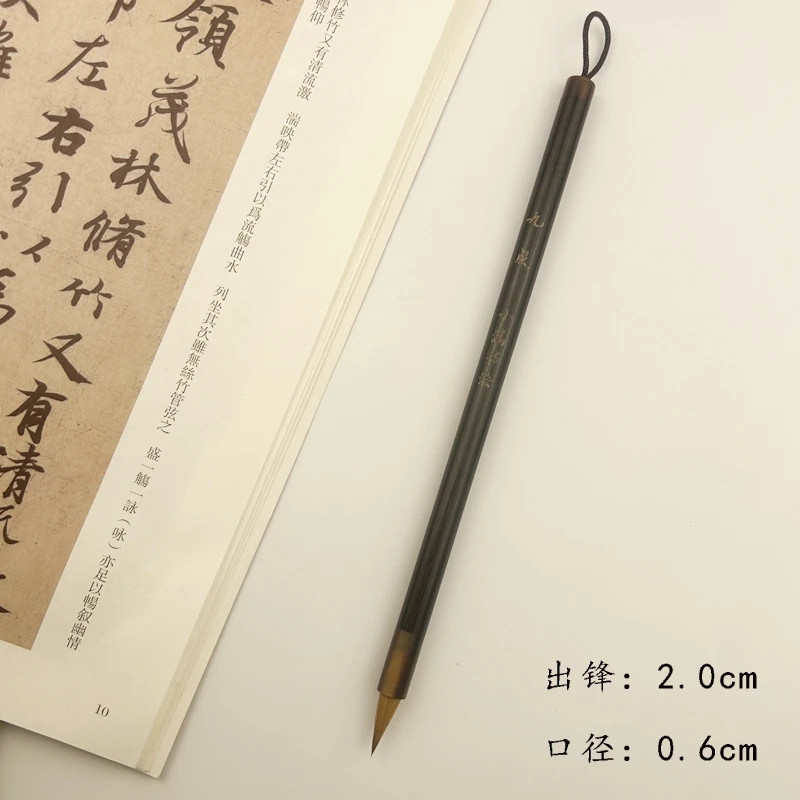 林修竹又有清流激　湍映帶左右引以爲流觴曲水　列坐其次雖無絲竹管弦之　盛一觴一詠（咏）亦足以暢叙幽情
暢仰
領茂林脩竹又有清
左右引以
10
出锋：2.0cm
口径：0.6cm